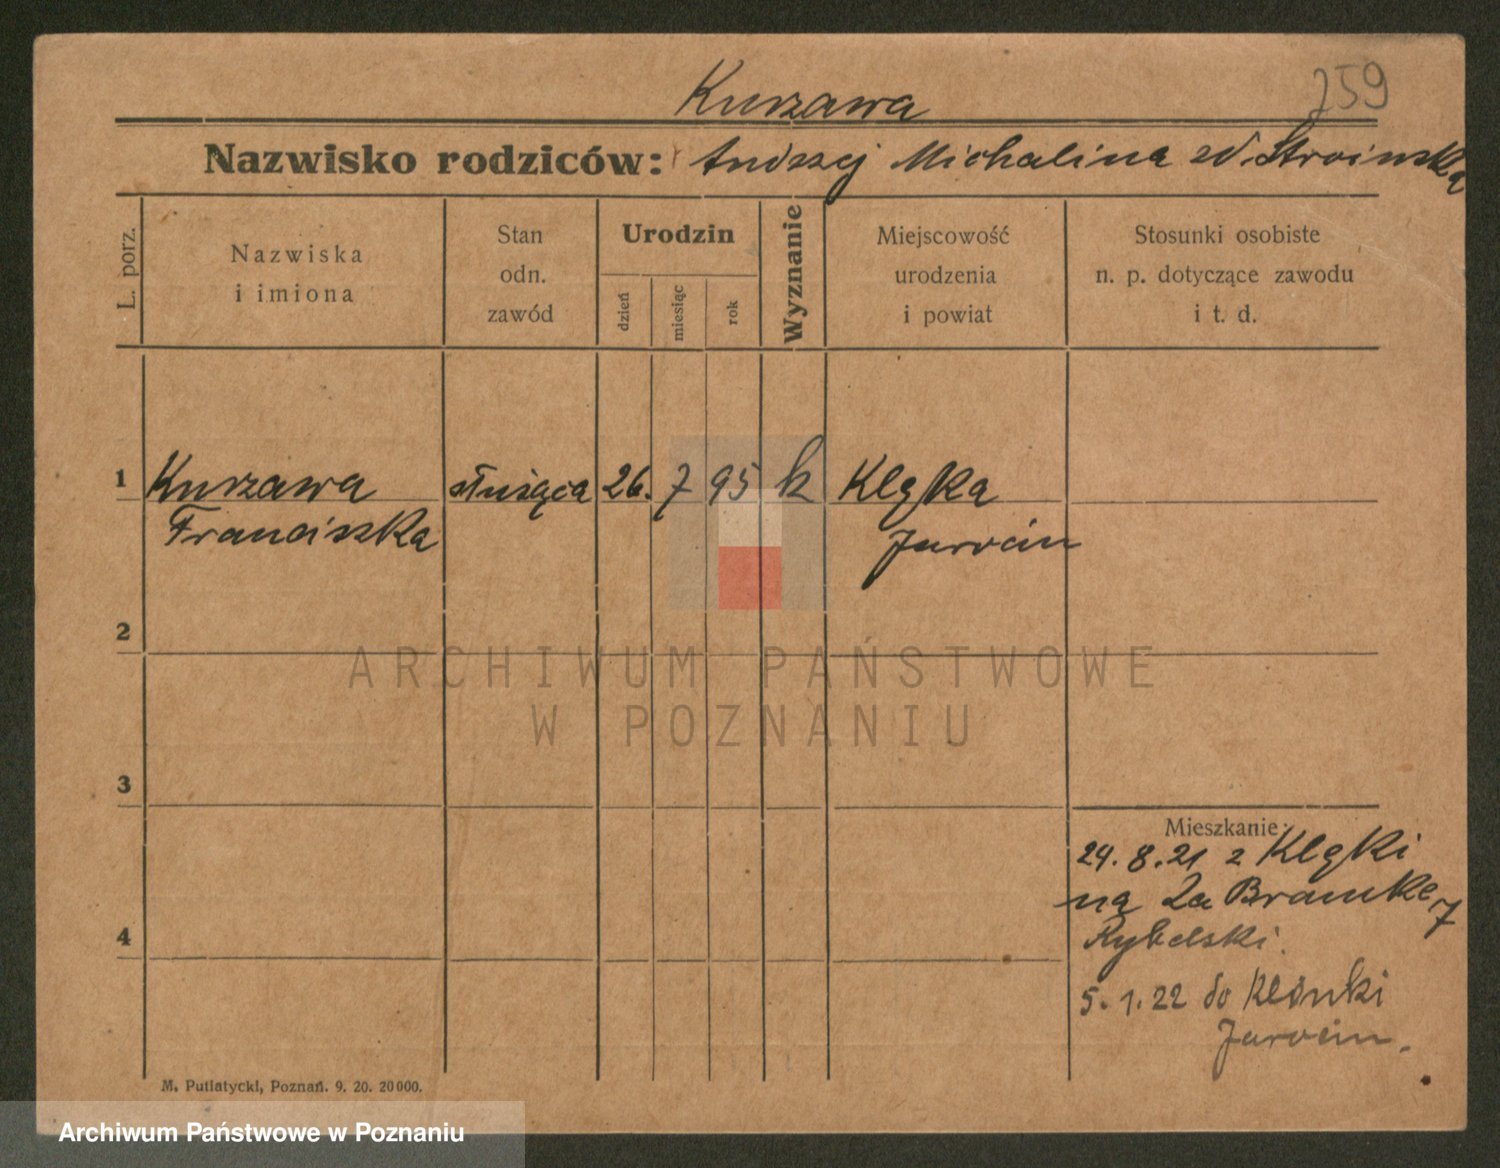 Kurzawa
259
Nazwisko rodziców: Andrzej Michalina zd. Stroinska
L. porz.
Nazwiska
i imiona
Stan
odn.
zawód
Urodzin
dzień
miesiąc
rok
Wyznanie
Miejscowość
urodzenia
i powiat
Stosunki osobiste
n. p. dotyczące zawodu
i t. d.
1 Kurzawa służąca 26. 7 95 k Klęka
Franciszka Jarocin
2
ARCHIWUM PAŃSTWOWE
W POZNANIU
3
Mieszkanie:
24. 8. 21 z Klęki
na Za Bramkę 7
4
5. 1. 22 do Klonki
Jarocin.
M. Putiatycki, Poznań. 9. 20. 20000.
Archiwum Państwowe w Poznaniu